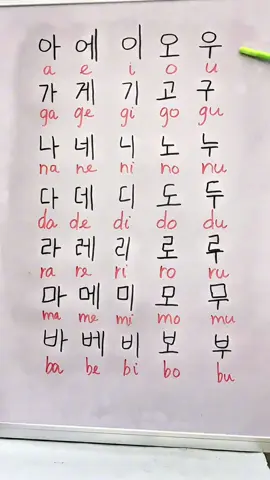 아 에 이 오 우
a e i o u
가 게 기 고 구
ga ge gi go gu
나 네 니 노 누
na ne ni no nu
다 데 디 도 두
da de di do du
라 레 리 로 루
ra re ri ro ru
마 메 미 모 무
ma me mi mo mu
바 베 비 보 부
ba be bi bo bu